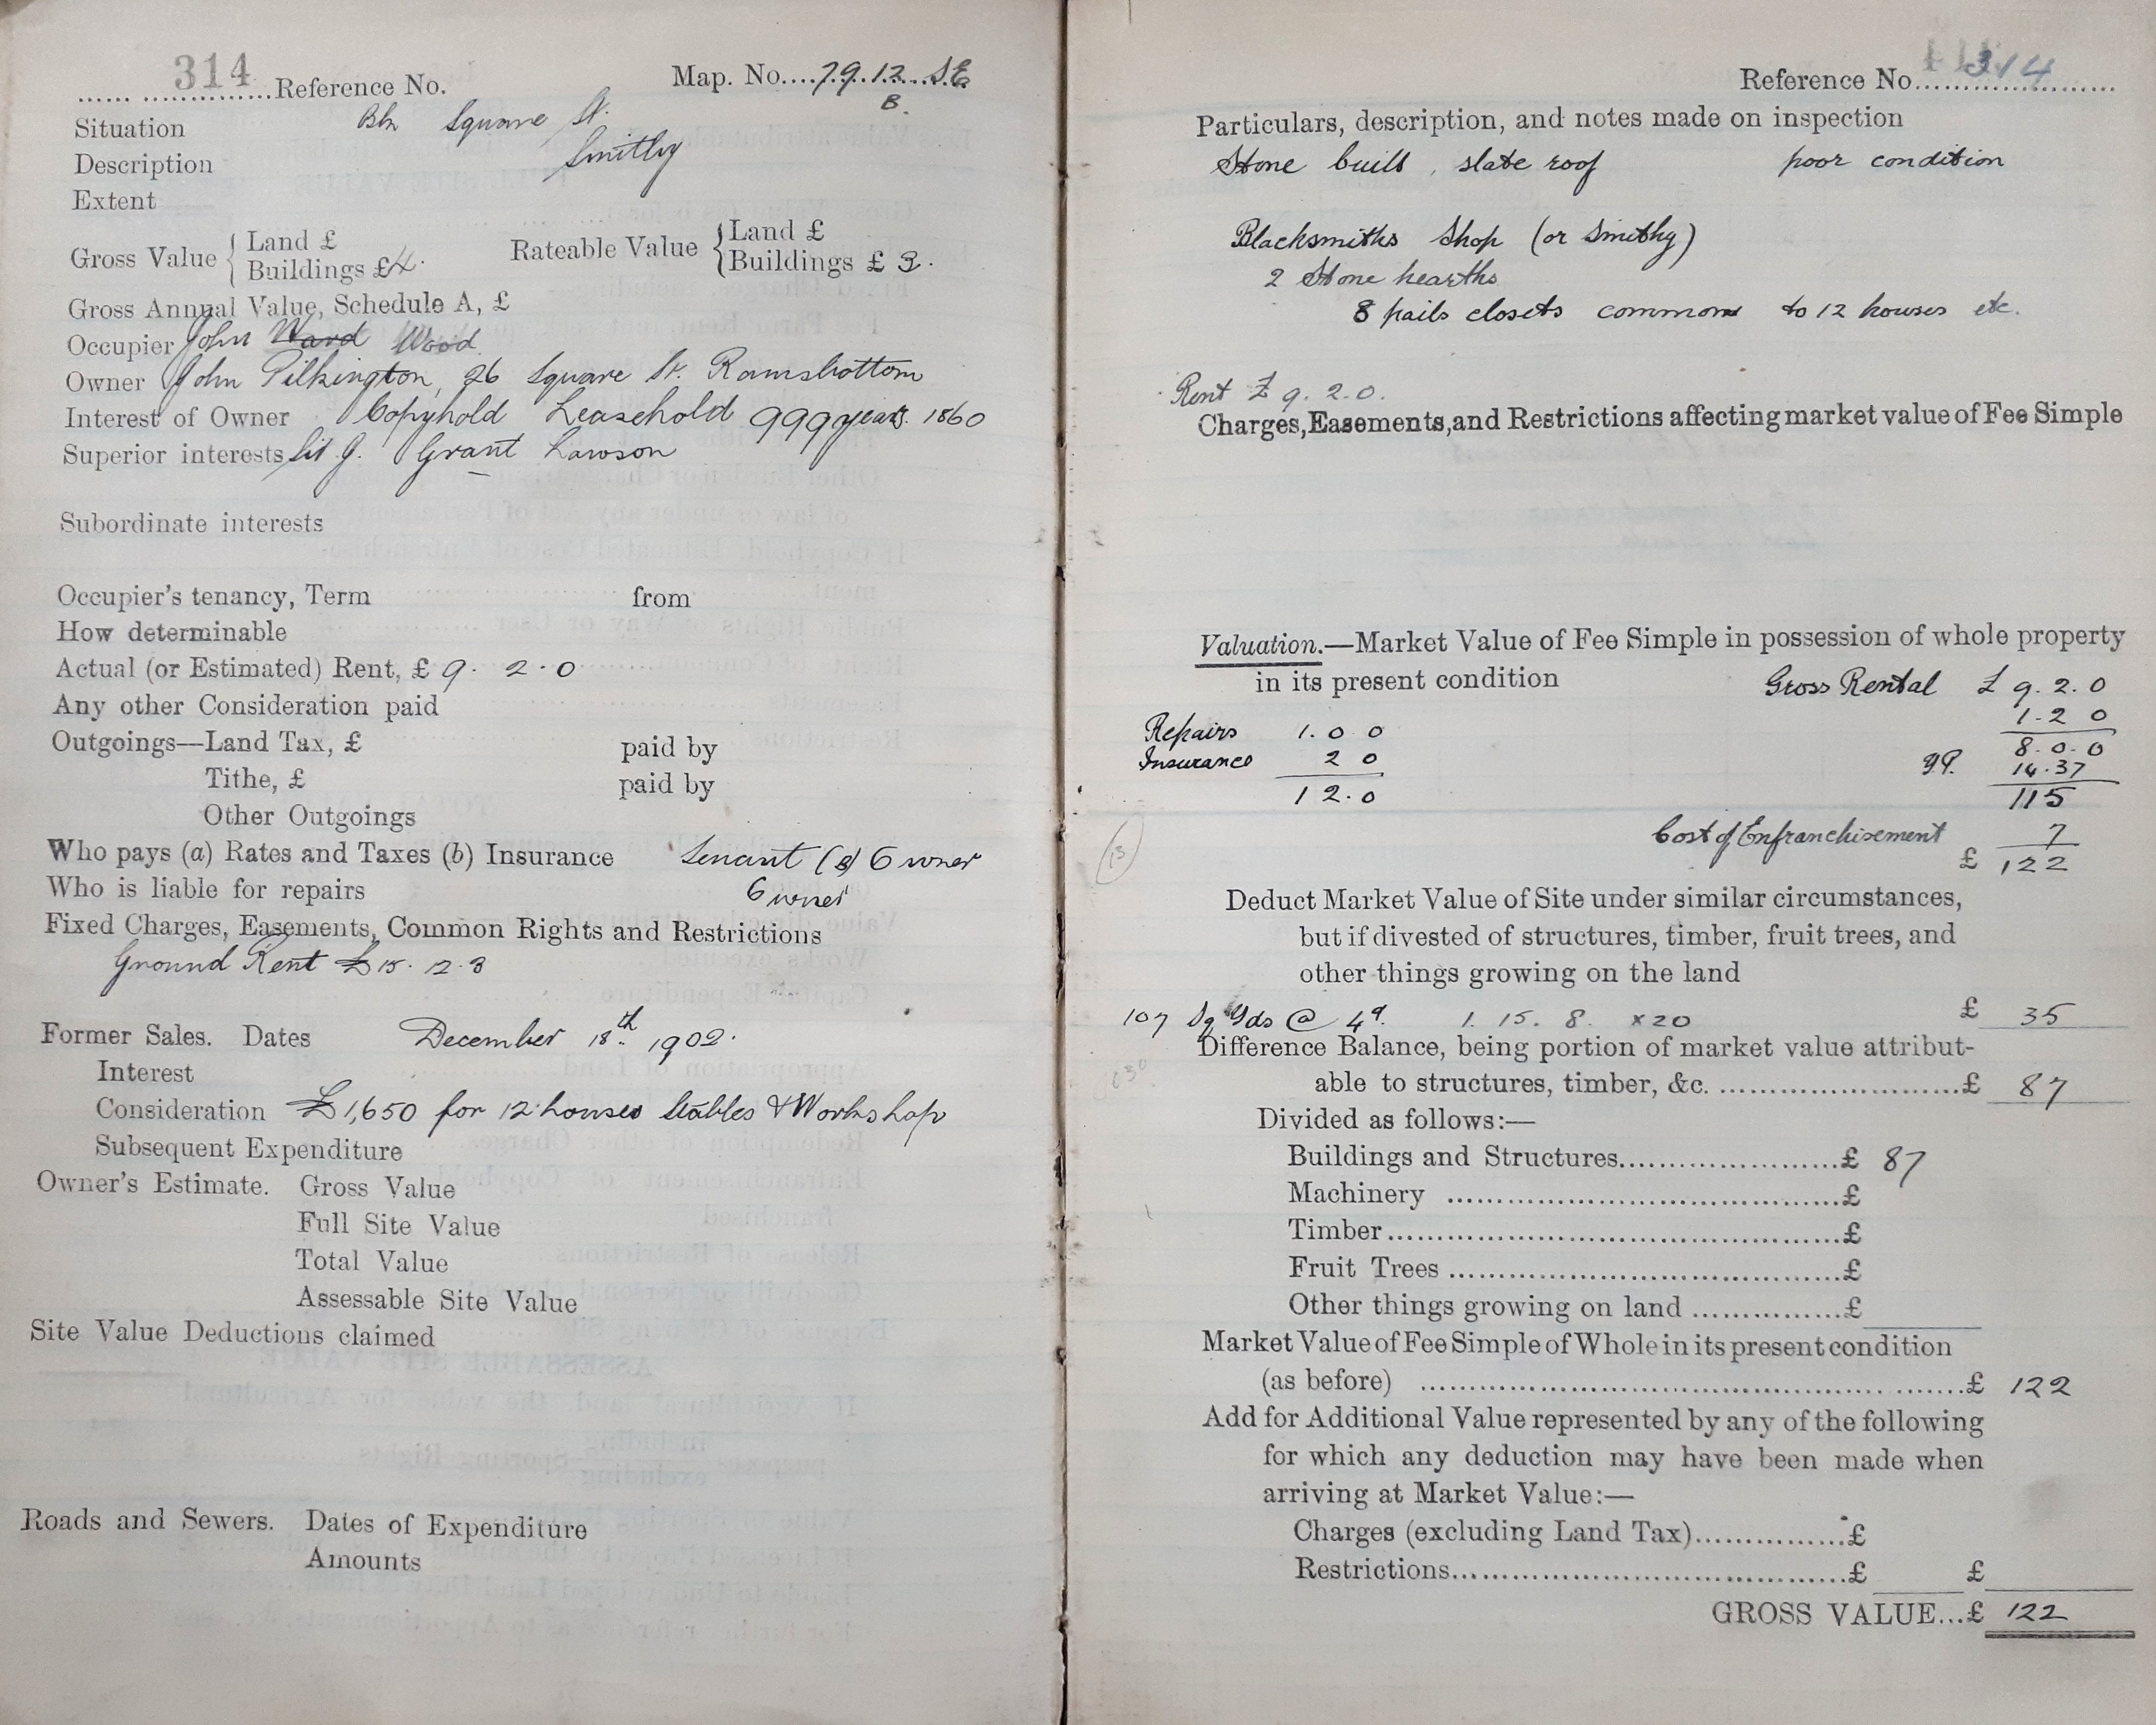 314 Reference No. Map. No. 79.12. S.E.
B.
Situation Bk Square St.
Description Smithy
Extent
Gross Value { Land £
Buildings £4.
Rateable Value { Land £
Buildings £ 3.
Gross Annual Value, Schedule A, £
Occupier John Ward Wood
Owner John Pilkington, 26 Square St. Ramsbottom
Interest of Owner Copyhold Leasehold 999 years. 1860
Superior interests Sir J. Grant Lawson
Subordinate interests
Occupier's tenancy, Term from
How determinable
Actual (or Estimated) Rent, £ 9. 2. 0
Any other Consideration paid
Outgoings—Land Tax, £ paid by
Tithe, £ paid by
Other Outgoings
Who pays (a) Rates and Taxes (b) Insurance Tenant (b) Owner
Who is liable for repairs Owner
Fixed Charges, Easements, Common Rights and Restrictions
Ground Rent £15. 12. 3
Former Sales. Dates December 18th 1902.
Interest
Consideration £1,650 for 12 houses Stables & Workshop
Subsequent Expenditure
Owner's Estimate. Gross Value
Full Site Value
Total Value
Assessable Site Value
Site Value Deductions claimed
Roads and Sewers. Dates of Expenditure
Amounts
Reference No. 314
Particulars, description, and notes made on inspection
Stone built, slate roof poor condition
Blacksmiths Shop (or Smithy)
2 Stone hearths
8 pails closets common to 12 houses etc.
Rent £ 9. 2. 0.
Charges, Easements, and Restrictions affecting market value of Fee Simple
Valuation.—Market Value of Fee Simple in possession of whole property
in its present condition Gross Rental £ 9. 2. 0
1. 2 0
Repairs 1. 0 0
8. 0. 0
Insurance 2 0
Y.P. 14.37
1 2. 0
115
Cost of Enfranchisement 7
(13)
£ 122
Deduct Market Value of Site under similar circumstances,
but if divested of structures, timber, fruit trees, and
other things growing on the land
107 Sq Yds @ 4d. 1. 15. 8. x20 £ 35
Difference Balance, being portion of market value attribut-
able to structures, timber, &c. £ 87
Divided as follows:—
Buildings and Structures £ 87
Machinery £
Timber £
Fruit Trees £
Other things growing on land £
Market Value of Fee Simple of Whole in its present condition
(as before) £ 122
Add for Additional Value represented by any of the following
for which any deduction may have been made when
arriving at Market Value:—
Charges (excluding Land Tax) £
Restrictions £ £
GROSS VALUE...£ 122